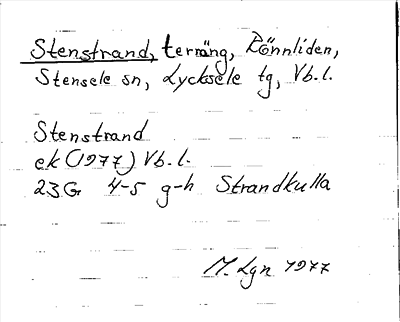 Stenstrand, terräng, Rönnliden,
Stensele sn, Lycksele tg, Vb.l.
Stenstrand
ek (1977) Vb.l.
23G 4-5 g-h Strandkulla
M. Lgn 1977